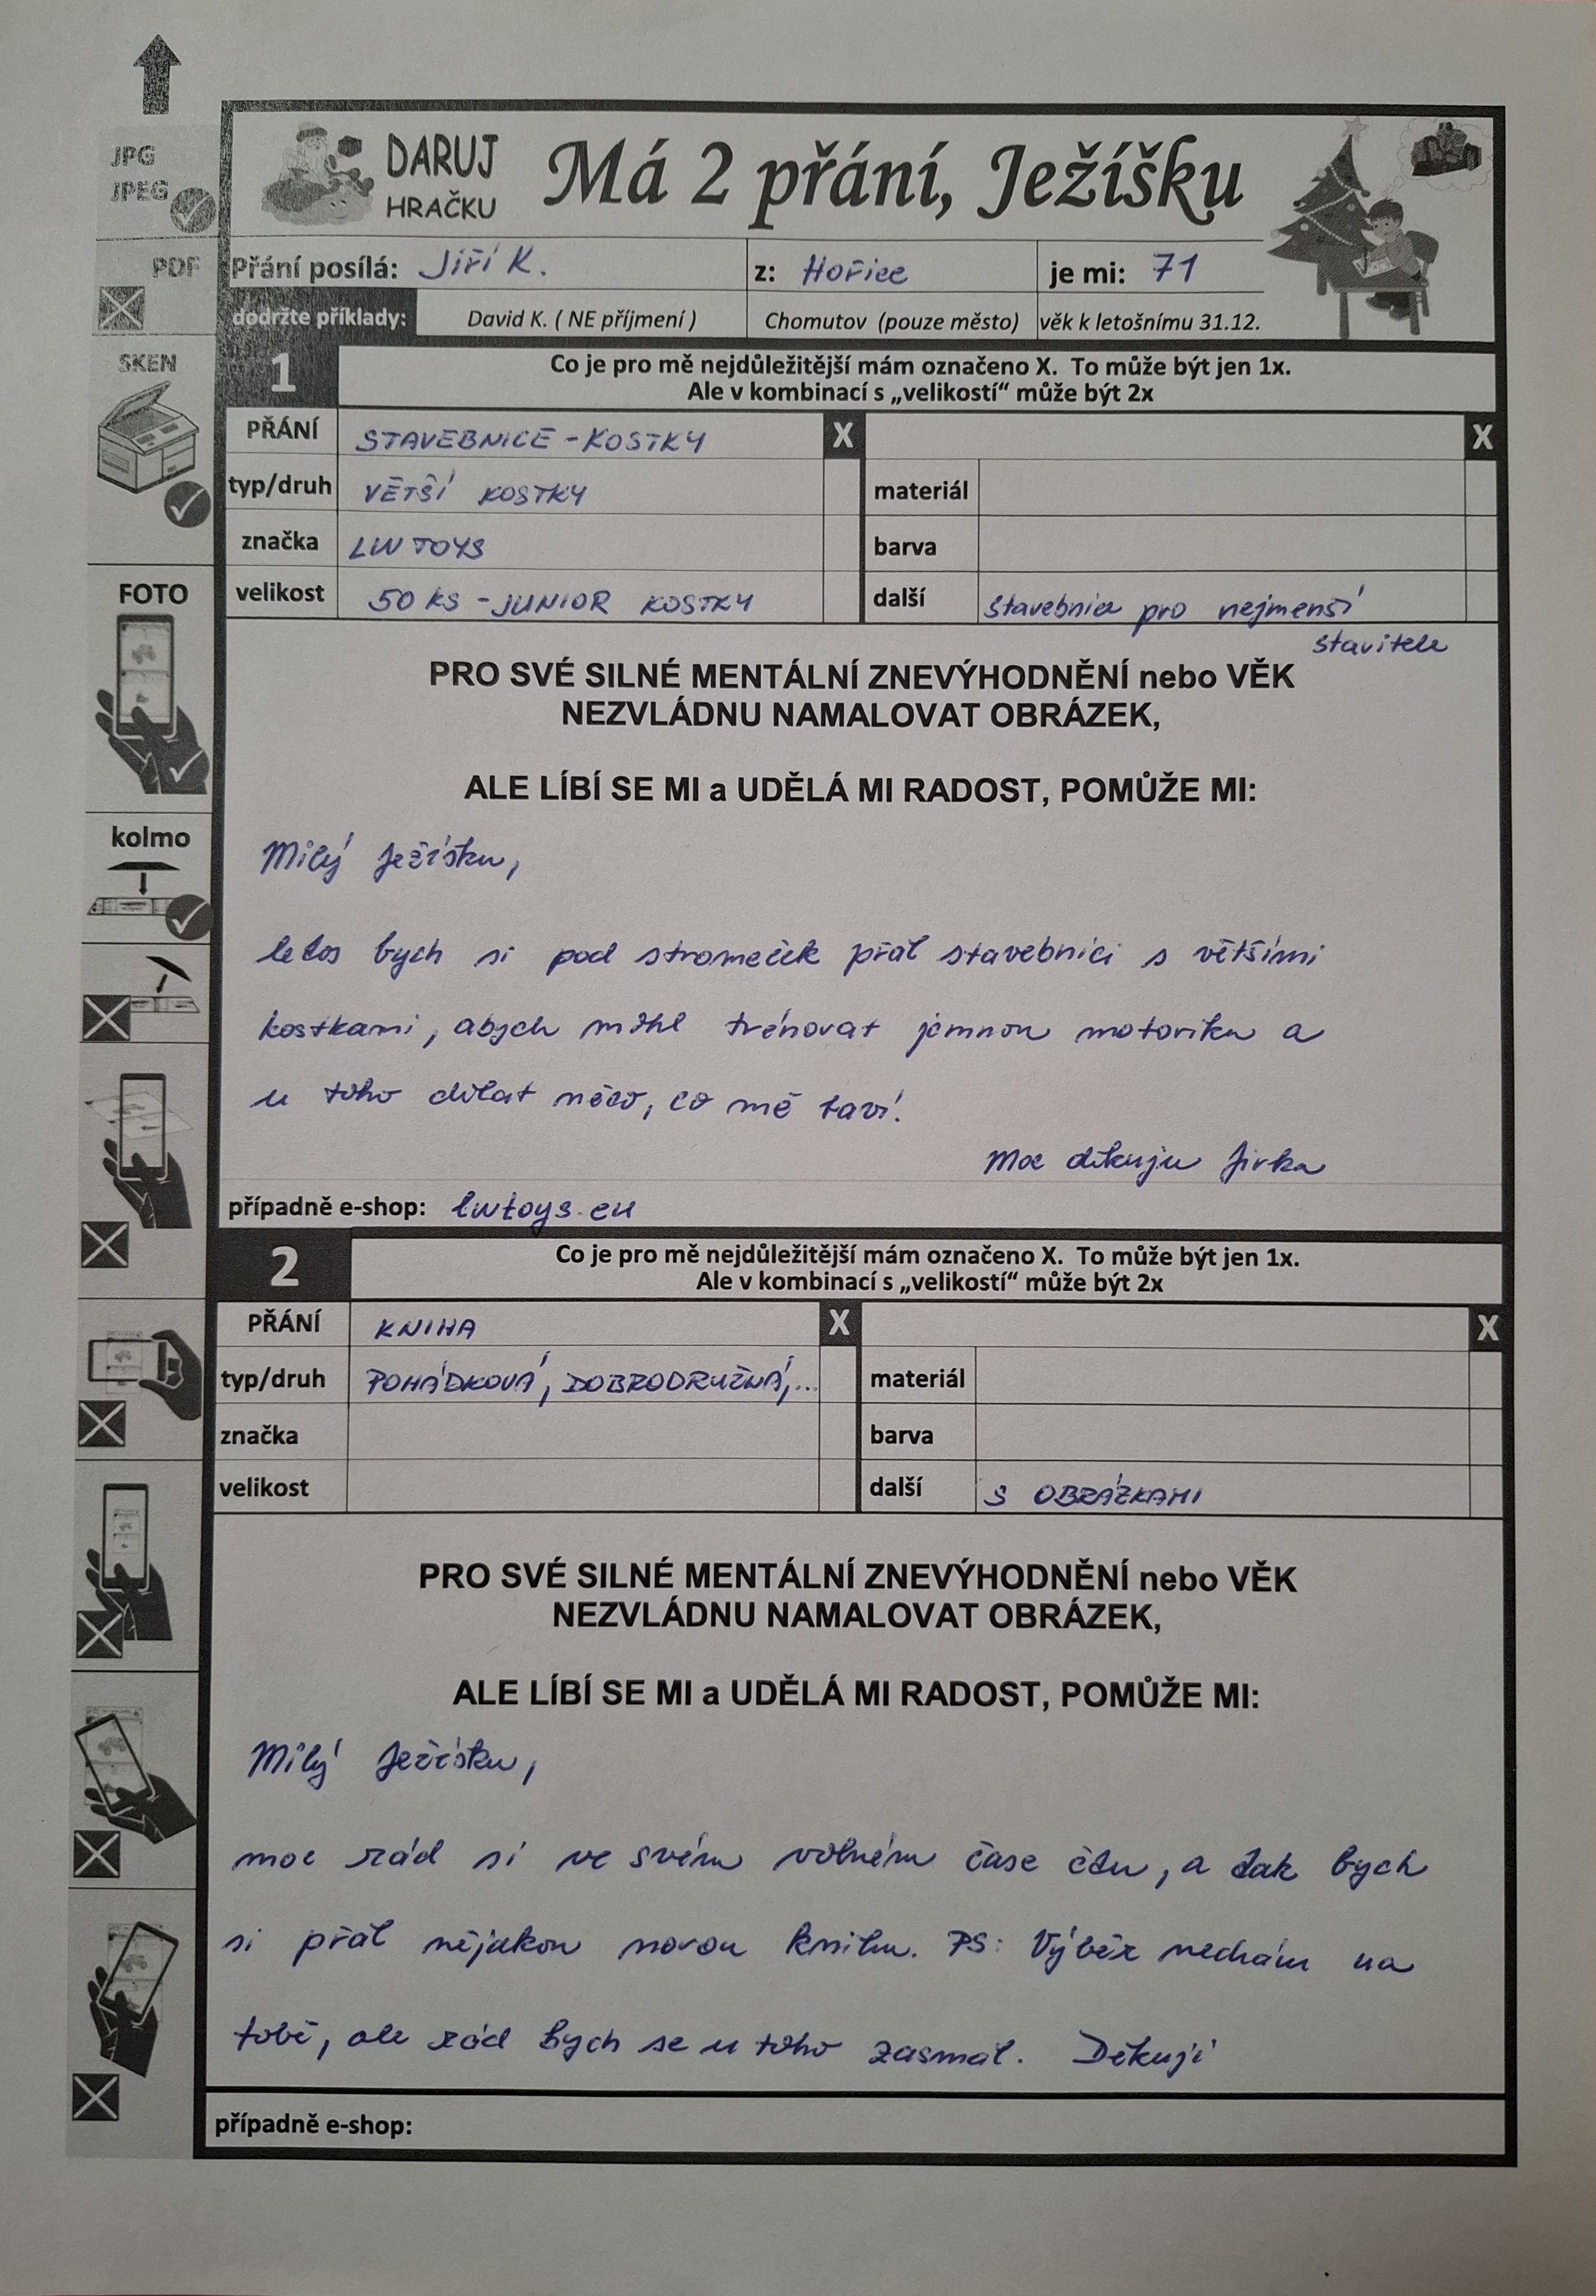 JPG
JPEG
PDF
SKEN
FOTO
kolmo
DARUJ
HRAČKU
Má 2 přání, Ježíšku
Přání posílá: Jiří K. z: Hořice je mi: 71
dodržte příklady: David K. ( NE příjmení ) Chomutov (pouze město) věk k letošnímu 31.12.
1 Co je pro mě nejdůležitější mám označeno X. To může být jen 1x.
Ale v kombinací s „velikostí“ může být 2x
PŘÁNÍ STAVEBNICE - KOSTKY X X
typ/druh VĚTŠÍ KOSTKY materiál
značka LW TOYS barva
velikost 50 KS - JUNIOR KOSTKY další Stavebnice pro nejmenší
stavitele
PRO SVÉ SILNÉ MENTÁLNÍ ZNEVÝHODNĚNÍ nebo VĚK
NEZVLÁDNU NAMALOVAT OBRÁZEK,
ALE LÍBÍ SE MI a UDĚLÁ MI RADOST, POMŮŽE MI:
Milý Ježíšku,
letos bych si pod stromeček přál stavebnici s většími
kostkami, abych mohl trénovat jemnou motoriku a
u toho dělat něco, co mě baví.
Moc děkuju Jirka
případně e-shop: lwtoys.eu
2 Co je pro mě nejdůležitější mám označeno X. To může být jen 1x.
Ale v kombinací s „velikostí“ může být 2x
PŘÁNÍ KNIHA X X
typ/druh POHÁDKOVÁ, DOBRODRUŽNÁ,... materiál
značka barva
velikost další S OBRÁZKAMI
PRO SVÉ SILNÉ MENTÁLNÍ ZNEVÝHODNĚNÍ nebo VĚK
NEZVLÁDNU NAMALOVAT OBRÁZEK,
ALE LÍBÍ SE MI a UDĚLÁ MI RADOST, POMŮŽE MI:
Milý Ježíšku,
moc rád si ve svém volném čase čtu, a tak bych
si přál nějakou novou knihu. PS: Výběr nechám na
tobě, ale rád bych se u toho zasmál. Děkuji
případně e-shop: